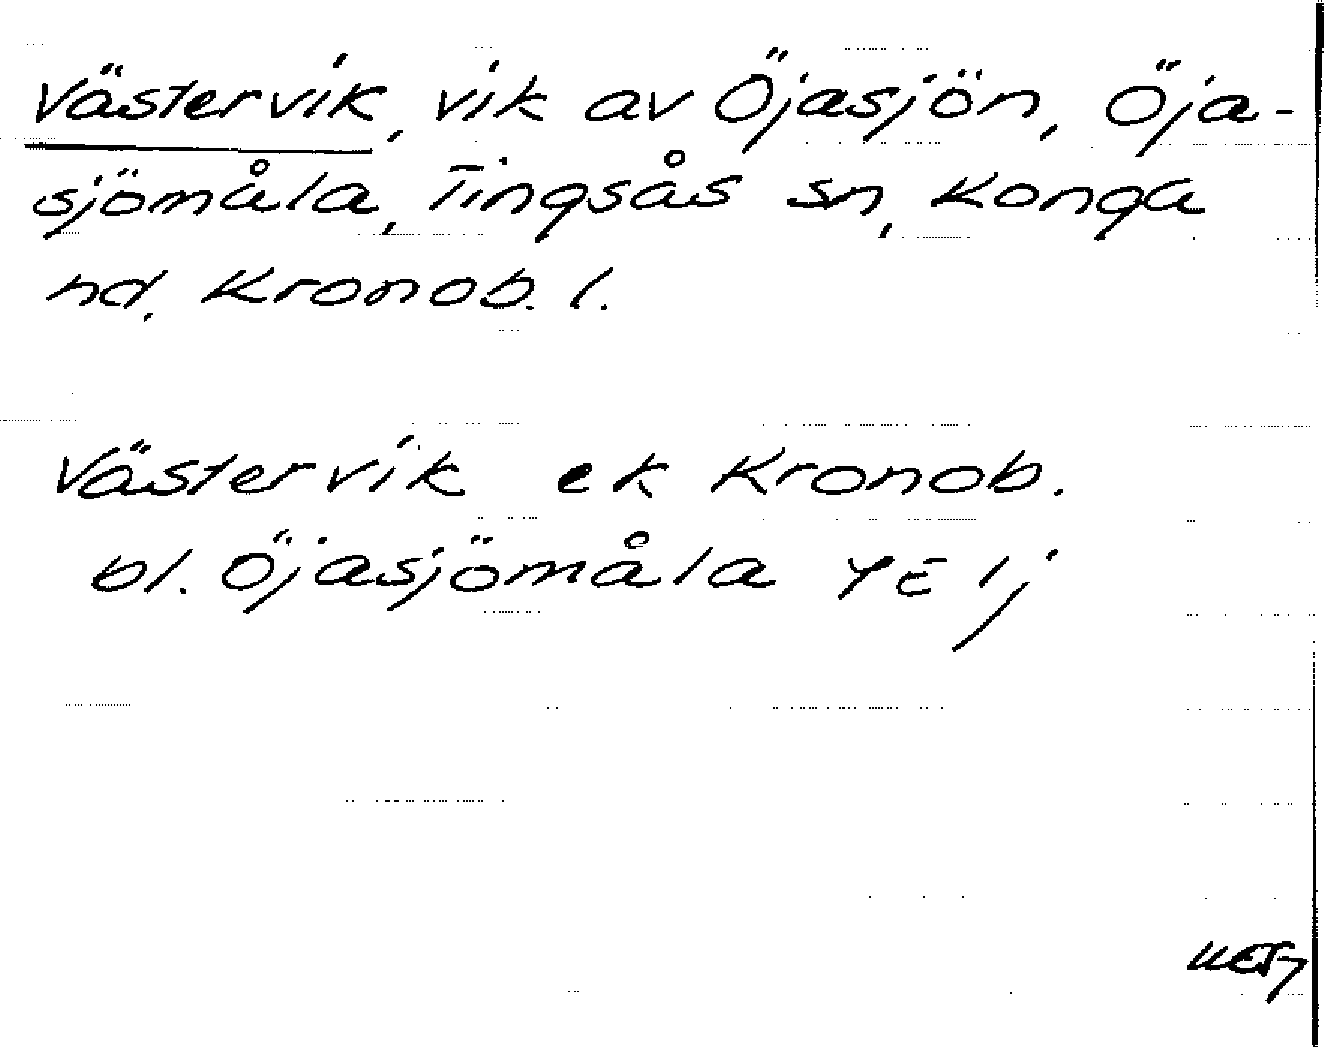 Västervik, vik av Öjasjön, Öja-
sjömåla, Tingsås sn, Konga
hd, Kronob. l.
Västervik ek Kronob.
bl. Öjasjömåla 4E 1j